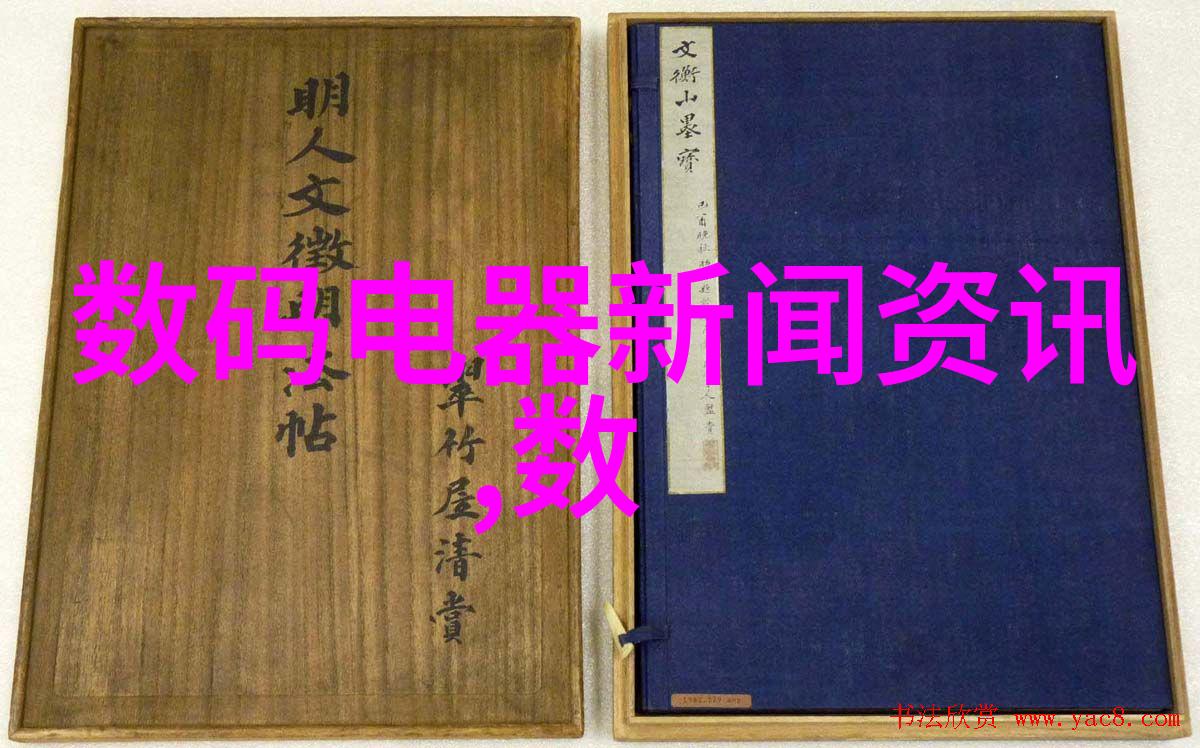 明人文徵明法帖
翠竹屋清赏
文衡山墨寶
数码电器新闻资讯
,数
书法欣赏 www.yac8.com